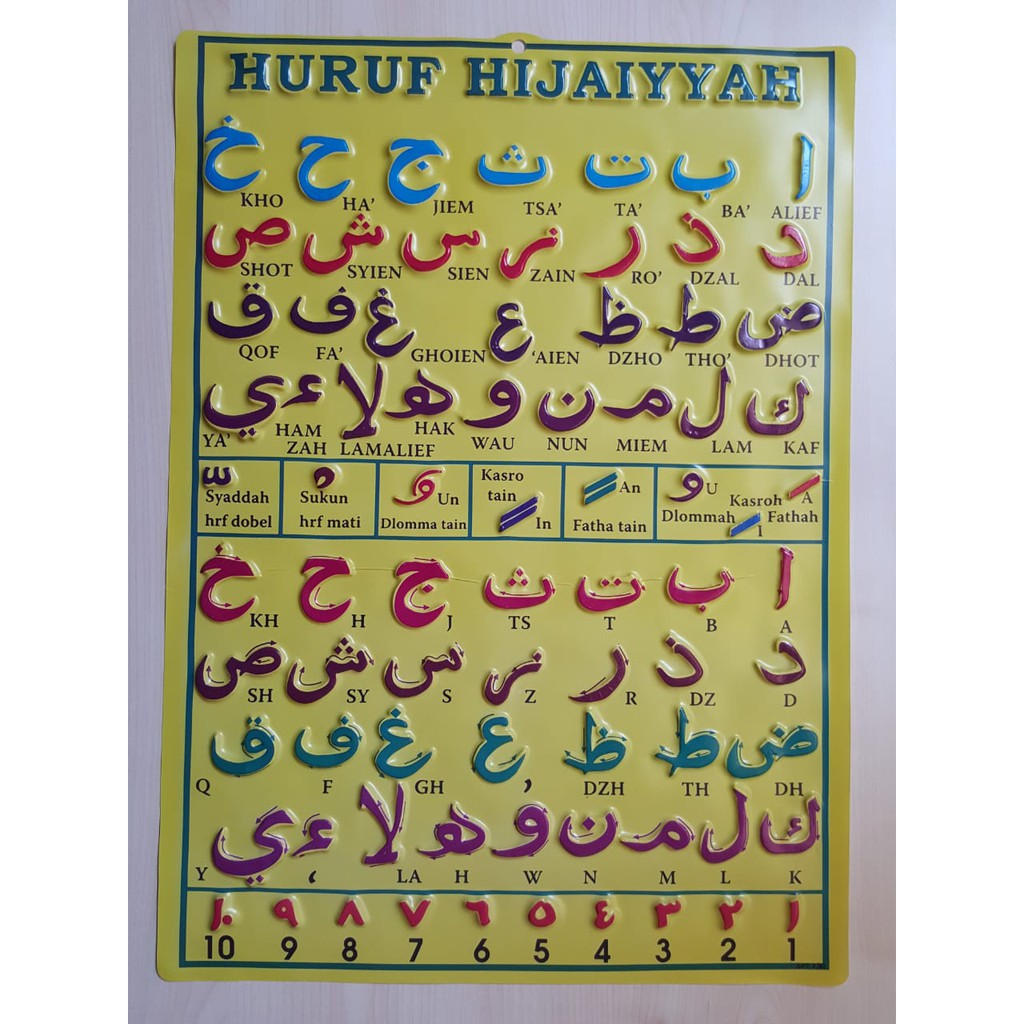 HURUF HIJAIYYAH
ا ب ت ث ج ح خ
KHO HA' JIEM TSA' TA' BA' ALIEF
د ذ ر ز س ش ص
SHOT SYIEN SIEN ZAIN RO' DZAL DAL
ض ط ظ ع غ ف ق
QOF FA' GHOIEN 'AIEN DZHO THO' DHOT
ك ل م ن و ه لا ء ي
YA' HAM ZAH LAMALIEF HAK WAU NUN MIEM LAM KAF
Syaddah
hrf dobel
Sukun
hrf mati
Un
Dlomma tain
Kasro
tain
In
An
Fatha tain
U
Dlommah
Kasroh
I
A
Fathah
ا ب ت ث ج ح خ
KH H J TS T B A
د ذ ر ز س ش ص
SH SY S Z R DZ D
ض ط ظ ع غ ف ق
Q F GH ’ DZH TH DH
ك ل م ن و ه لا ء ي
Y ‘ LA H W N M L K
١٠ ٩ ٨ ٧ ٦ ٥ ٤ ٣ ٢ ١
10 9 8 7 6 5 4 3 2 1